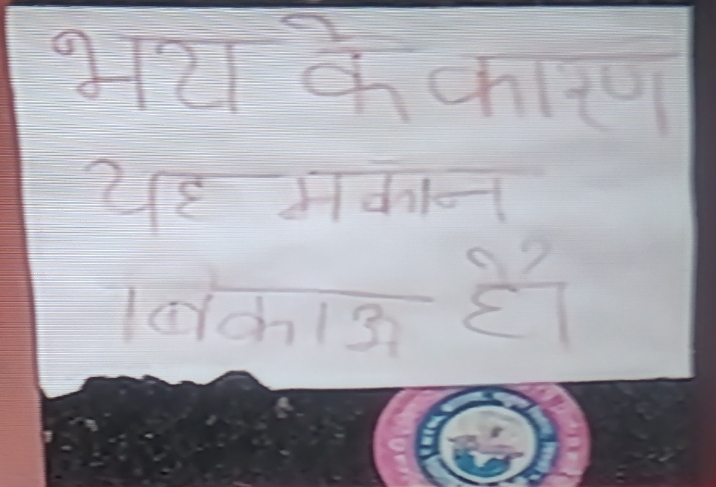 भय के कारण
यह मकान
बिकाऊ है।